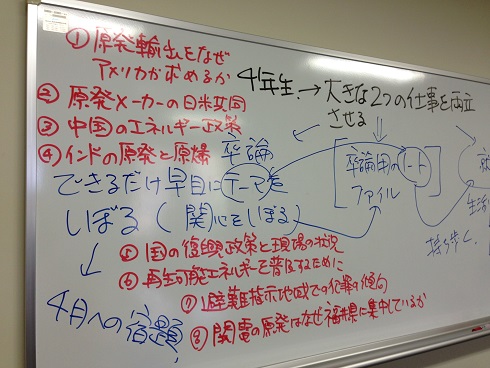 ① 原発輸出をなぜ
アメリカが求めるか
② 原発メーカーの日米共同
③ 中国のエネルギー政策
④ インドの原発と原爆
4年生 → 大きな2つの仕事を両立
させる
卒論
できるだけ早目にテーマを
しぼる(関心をしぼる)
卒論用のノート
ファイル
就
生活
持ち歩く
⑤ 国の復興政策と現場の状況
⑥ 再生可能エネルギーを普及するために
⑦ 避難指示地域での犯罪の傾向
⑧ 関電の原発はなぜ福井県に集中しているか
4月への宿題